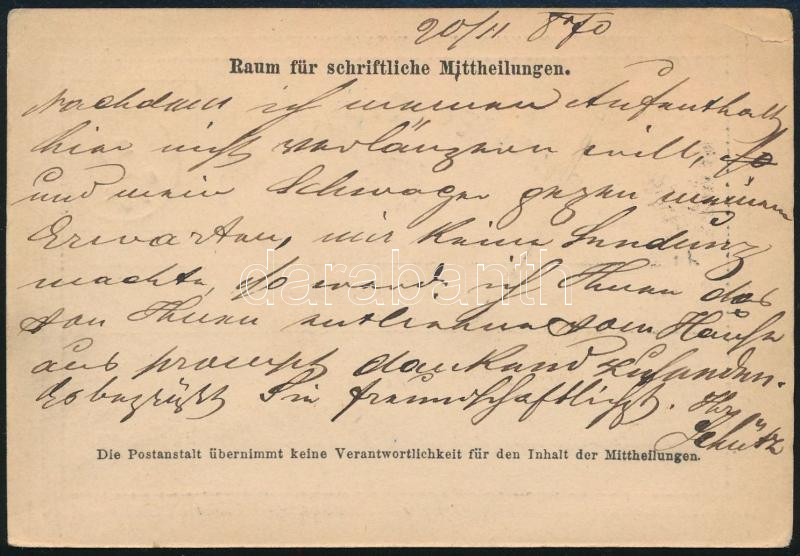 20/11 870
Raum für schriftliche Mittheilungen.
Nachdem ich meinen Aufenthalt
hier nicht verlängern will, so
und mein Schwager gegen meinem
Erwarten, mir keine Sendung
machte, so werde ich Ihnen das
von Ihnen entliehene vom Hause
aus prompt dankend zusenden.
Es begrüßt Sie freundschaftlichst. Ihr
Schütz
darabanth
Die Postanstalt übernimmt keine Verantwortlichkeit für den Inhalt der Mittheilungen.